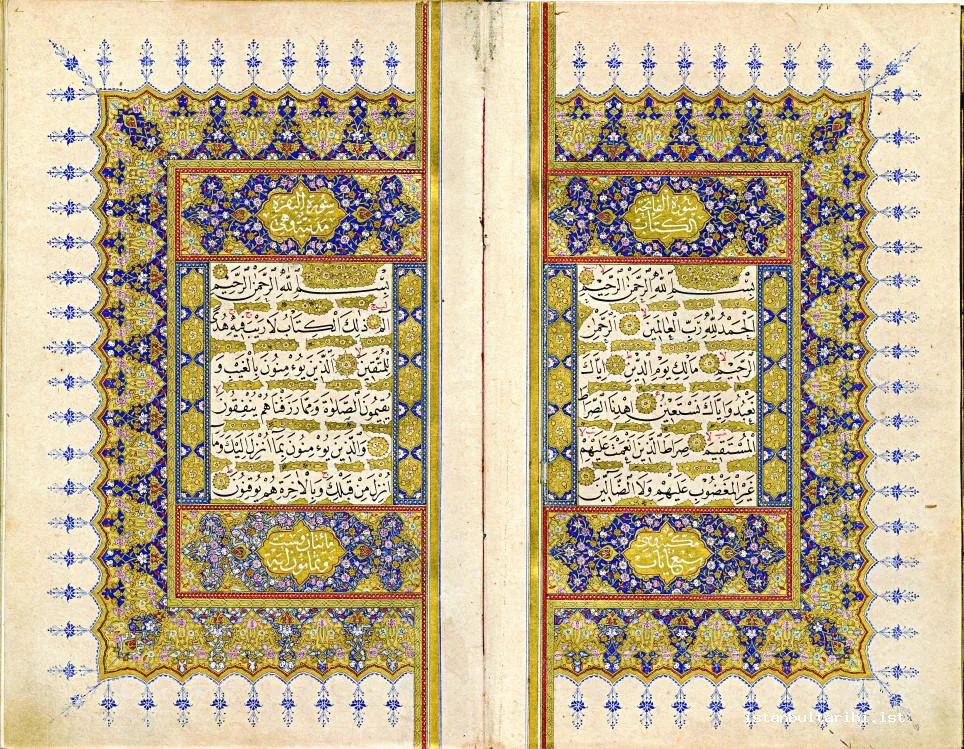 سُورَةُ الْفَاتِحَةِ
الْكِتَابِ
بِسْمِ اللّٰهِ الرَّحْمٰنِ الرَّحِيمِ
اَلْحَمْدُ لِلّٰهِ رَبِّ الْعَالَمِينَ اَلرَّحْمٰنِ
الرَّحِيمِ مَالِكِ يَوْمِ الدِّينِ اِيَّاكَ
نَعْبُدُ وَاِيَّاكَ نَسْتَعِينُ اِهْدِنَا الصِّرَاطَ
الْمُسْتَقِيمَ صِرَاطَ الَّذِينَ اَنْعَمْتَ عَلَيْهِمْ
غَيْرِ الْمَغْضُوبِ عَلَيْهِمْ وَلَا الضَّالِّينَ
مكية وهى
سبع آيات
سُورَةُ الْبَقَرَةِ
مَدَنِيَّة وَهِىَ
بِسْمِ اللّٰهِ الرَّحْمٰنِ الرَّحِيمِ
الٓمٓ ذٰلِكَ الْكِتَابُ لَا رَيْبَ فِيهِ هُدًى
لِلْمُتَّقِينَ اَلَّذِينَ يُؤْمِنُونَ بِالْغَيْبِ وَ
يُقِيمُونَ الصَّلٰوةَ وَمِمَّا رَزَقْنَاهُمْ يُنْفِقُونَ
وَالَّذِينَ يُؤْمِنُونَ بِمَا اُنْزِلَ اِلَيْكَ وَمَا
اُنْزِلَ مِنْ قَبْلِكَ وَبِالْاٰخِرَةِ هُمْ يُوقِنُونَ
مائتان وست
وثمانون آية
istanbultarihi.ist